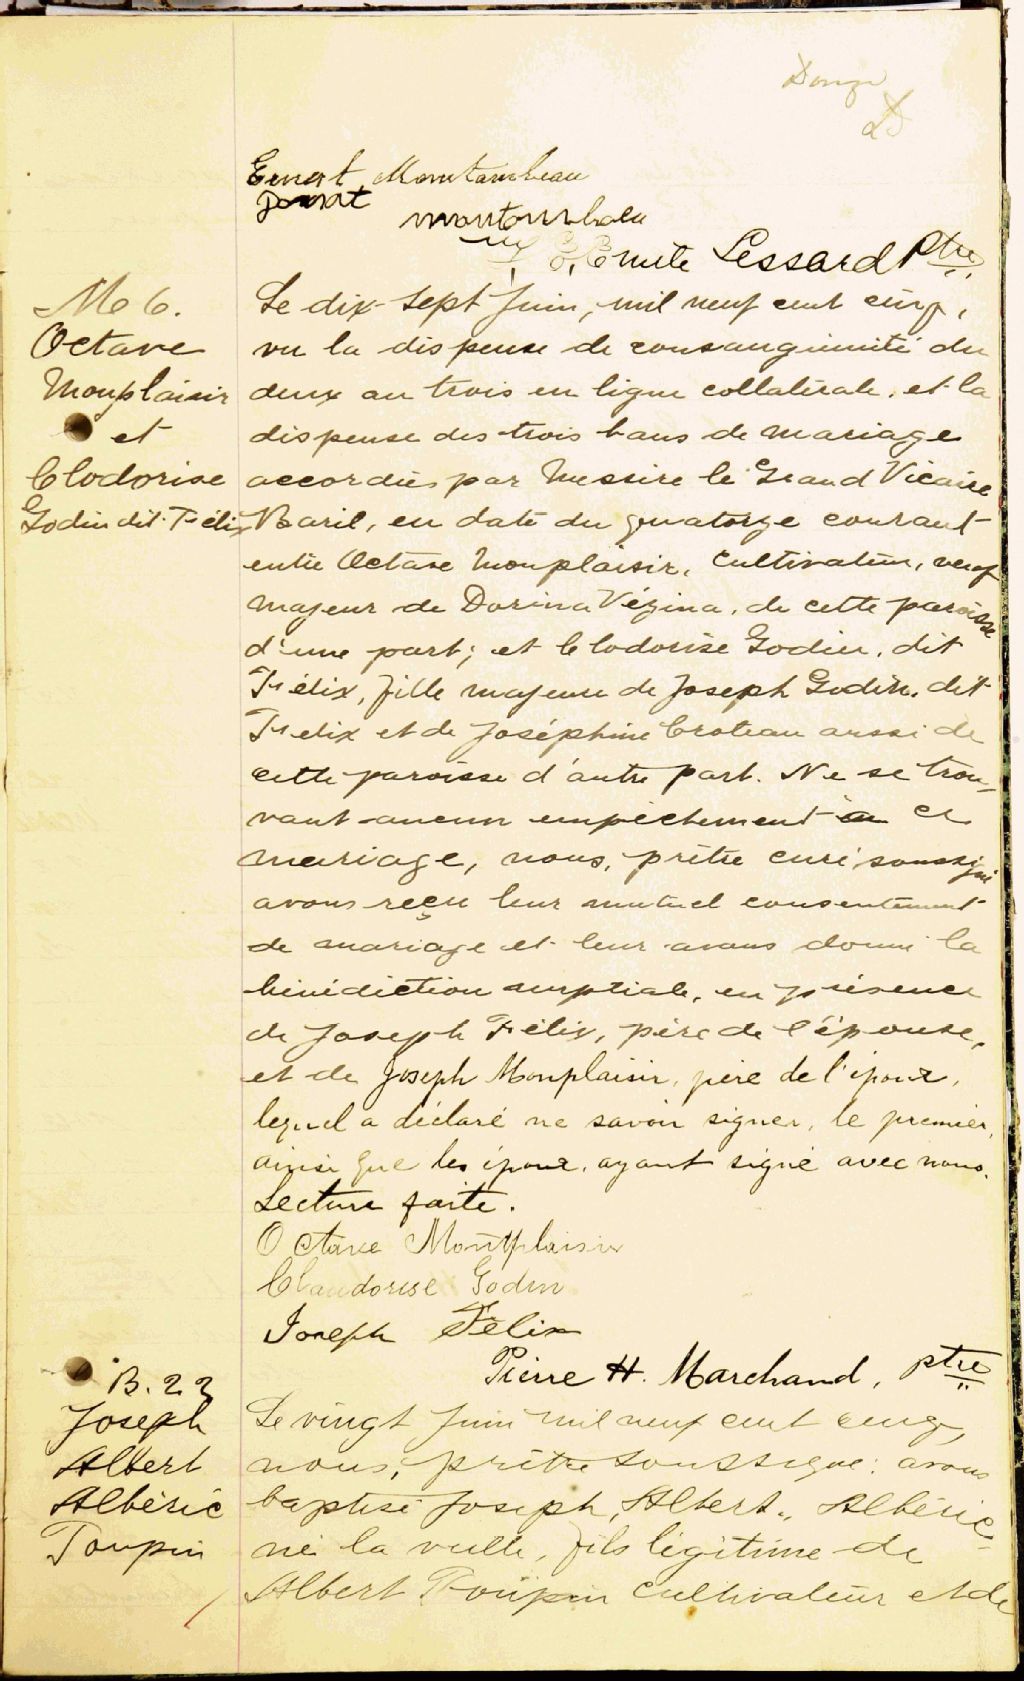 Donze
25
Ernest Montambeau
Donat
montambeau
J. E. Emile Lessard Ptre
M 6.
Octave
Monplaisir
et
Clodorise
Godin dit Félix
Le dix-sept Juin, mil neuf cent cinq,
vu la dispense de consanguinité du
deux au trois en ligne collatérale, et la
dispense des trois bans de mariage
accordées par Messire le Grand Vicaire
Baril, en date du quatorze courant
entre Octave Monplaisir, cultivateur, veuf
majeur de Dorina Vézina, de cette paroisse
d'une part; et Clodorise Godin, dit
Félix, fille majeure de Joseph Godin, dit
Félix et de Joséphine Croteau aussi de
cette paroisse d'autre part. Ne se trou-
vant aucun empêchement à ce
mariage, nous, prêtre curé soussigné
avons reçu leur mutuel consentement
de mariage et leur avons donné la
bénédiction nuptiale, en présence
de Joseph Félix, père de l'épouse,
et de Joseph Monplaisir, père de l'époux,
lequel a déclaré ne savoir signer, le premier,
ainsi que les époux, ayant signé avec nous.
Lecture faite.
Octave Montplaisir
Claudorise Godin
Joseph Félix
Pierre H. Marchand, ptre
B. 22
Joseph
Albert
Albéric
Toupin
Le vingt Juin mil neuf cent cinq,
nous, prêtre soussigné, avons
baptisé Joseph, Albert, Albéric
né la veille, fils légitime de
Albert Toupin cultivateur et de